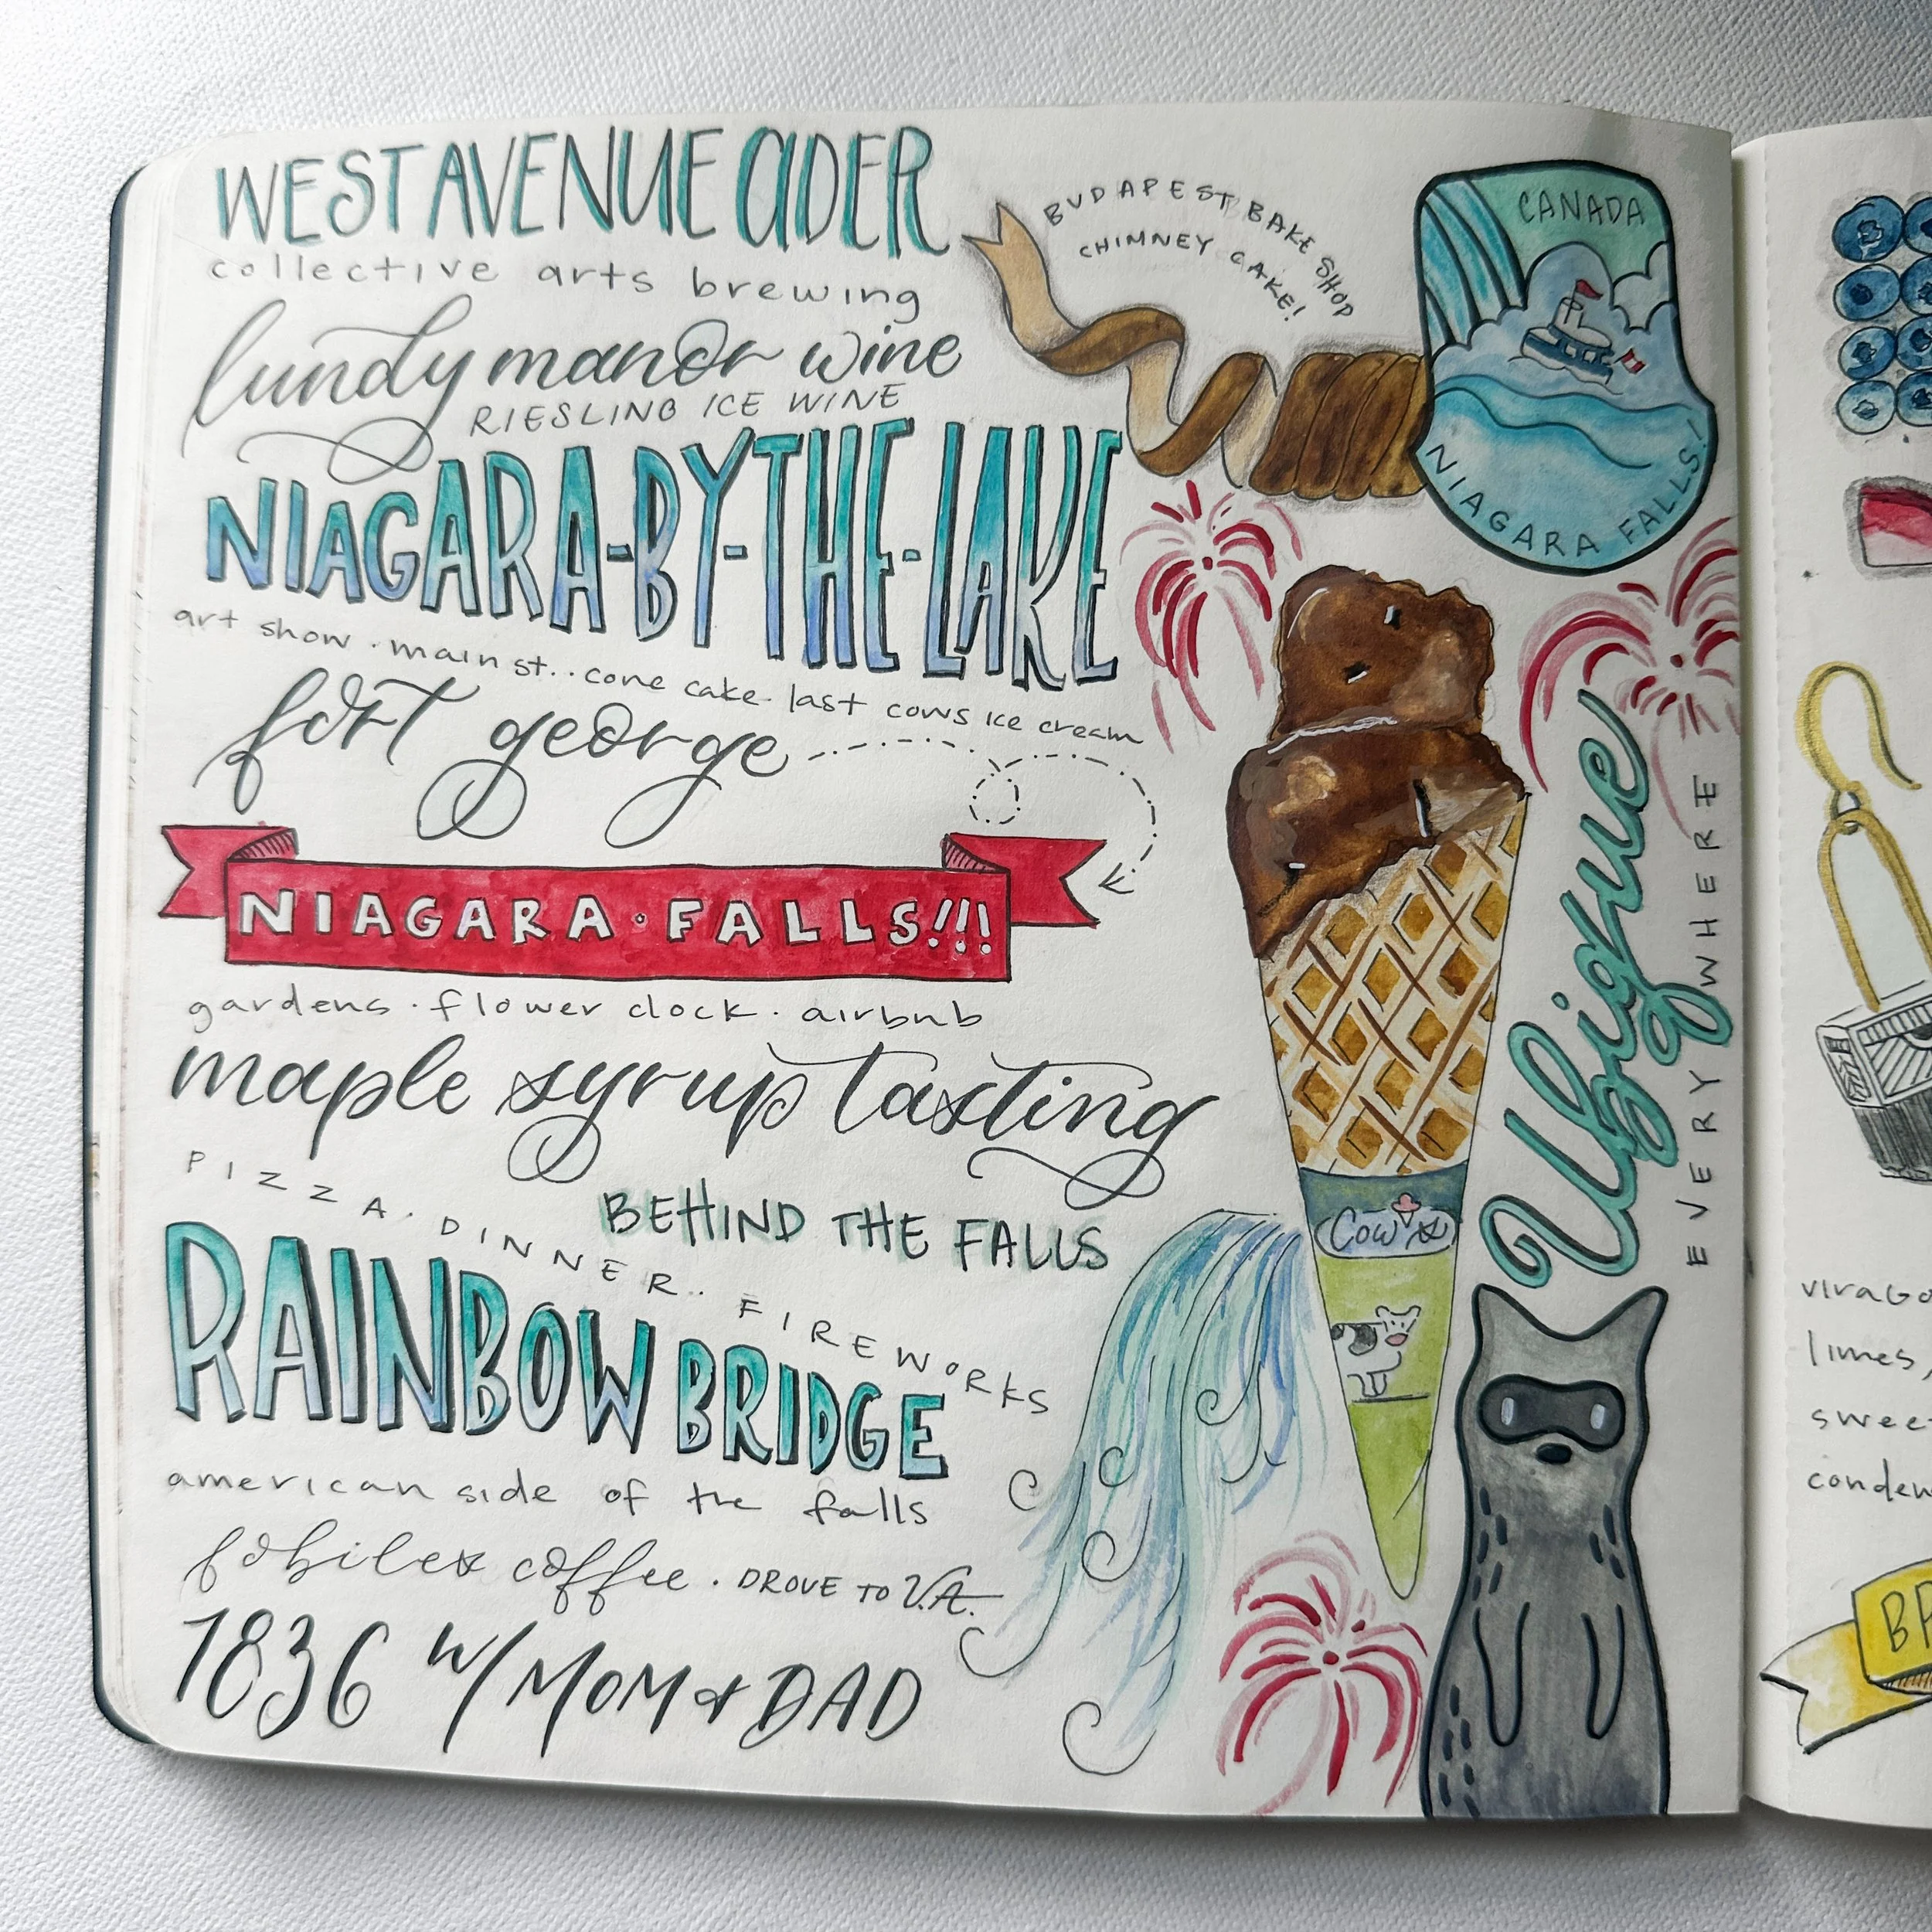 WEST AVENUE CIDER
collective arts brewing
lundy manor wine
RIESLING ICE WINE
NIAGARA-BY-THE-LAKE
art show · main st. · cone cake · last cows ice cream
fort george
NIAGARA · FALLS!!!
gardens · flower clock · airbnb
maple syrup tasting
PIZZA · DINNER · FIREWORKS
BEHIND THE FALLS
RAINBOW BRIDGE
american side of the falls
fobilex coffee · DROVE TO V.A.
1836 w/ MOM & DAD
BUDAPEST BAKE SHOP
CHIMNEY CAKE!
CANADA
NIAGARA FALLS!
Ubique
EVERYWHERE
COWS
limes,